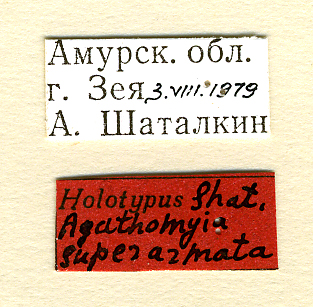 Амурск. обл.
г. Зея, 3.VIII.1979
А. Шаталкин
Holotypus Shat.
Agathomyia
superarmata